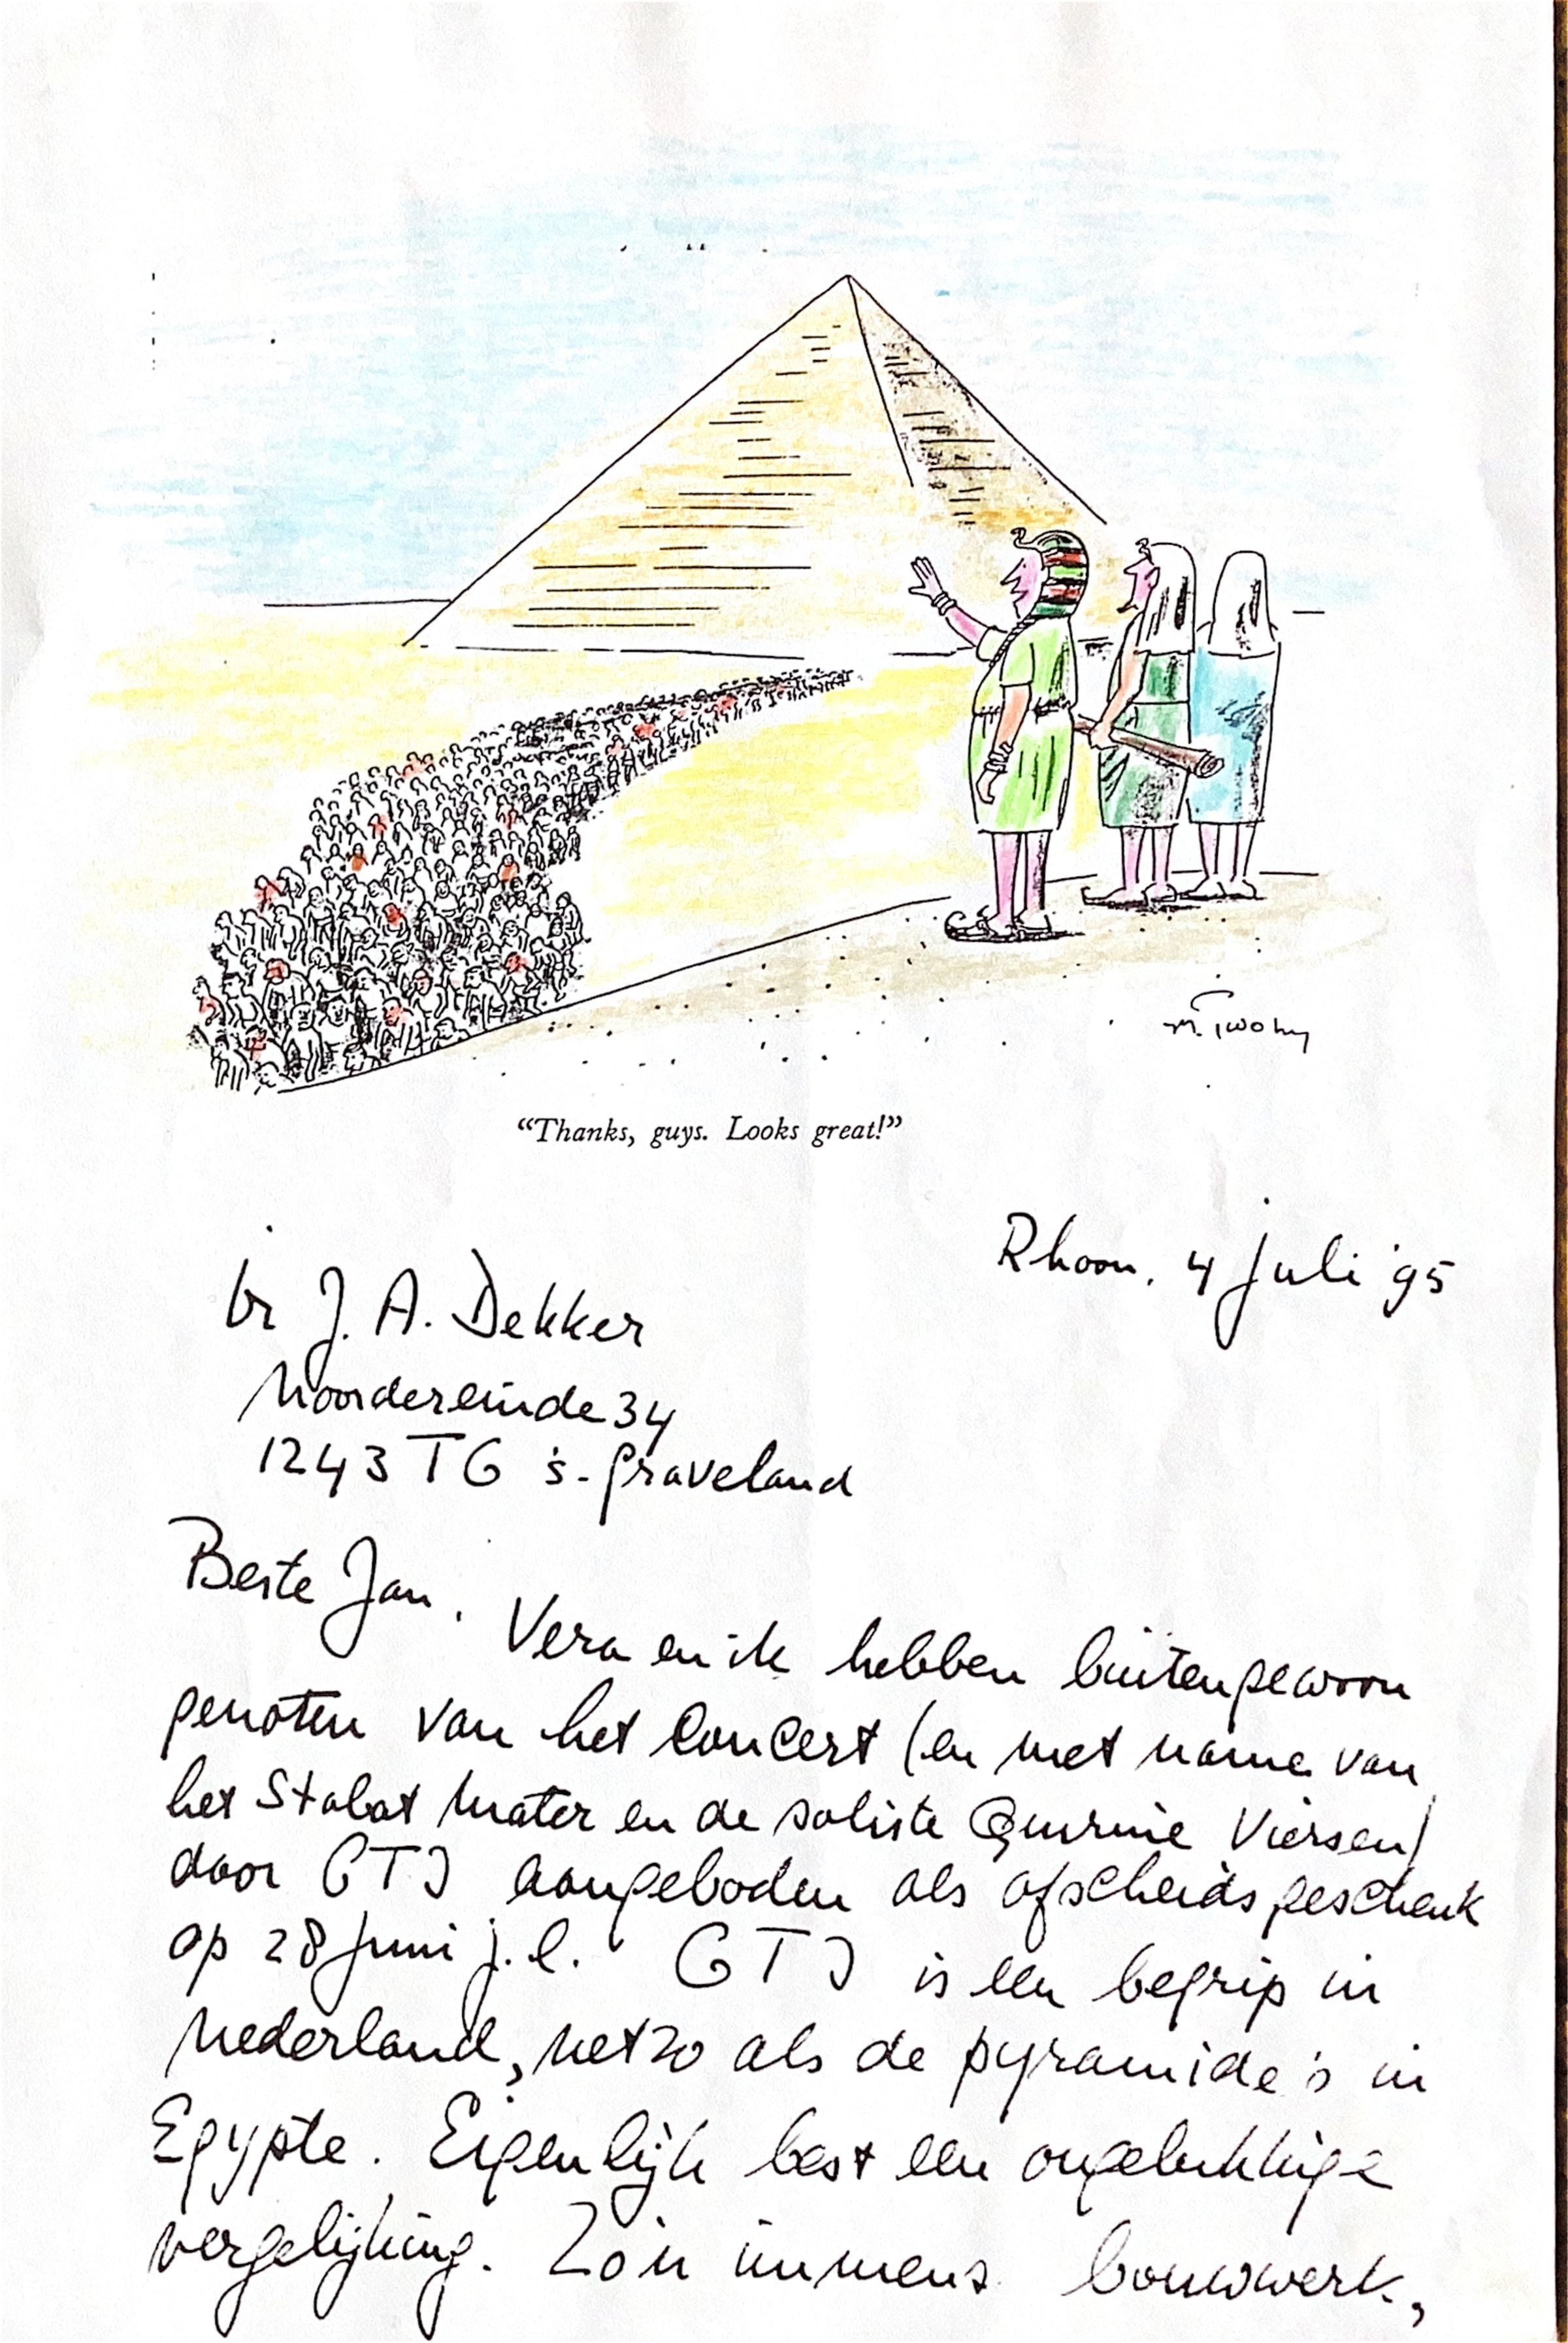 M. Twohy
“Thanks, guys. Looks great!”
Rhoon, 4 juli '95
ir J. A. Dekker
Noordereinde 34
1243 TG 's-Graveland
Beste Jan,
Vera en ik hebben buitengewoon
genoten van het Concert (en met name van
het Stabat Mater en de soliste Quirine Viersen)
door GTI aangeboden als afscheidsgeschenk
op 28 juni j.l. GTI is een begrip in
Nederland, net zo als de pyramide's in
Egypte. Eigenlijk best een ongelukkige
vergelijking. Zo'n immens bouwwerk,